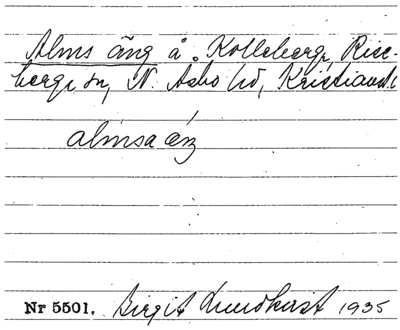 Alms äng å Kolleberga, Rise-
berga sn, N. Asbo hd, Kristianst.
almsa æŋ
Nr 5501. Birgit Lundkvist 1935